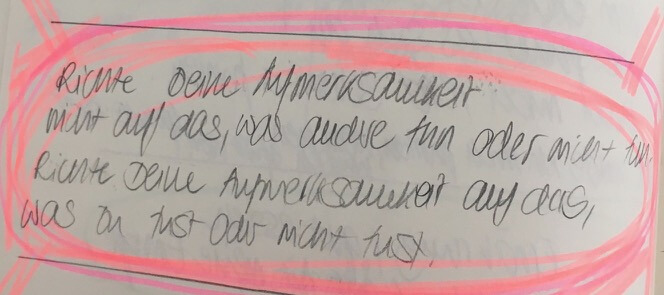 Richte Deine Aufmerksamkeit
nicht auf das, was andere tun oder nicht tun.
Richte Deine Aufmerksamkeit auf das,
was Du tust oder nicht tust.